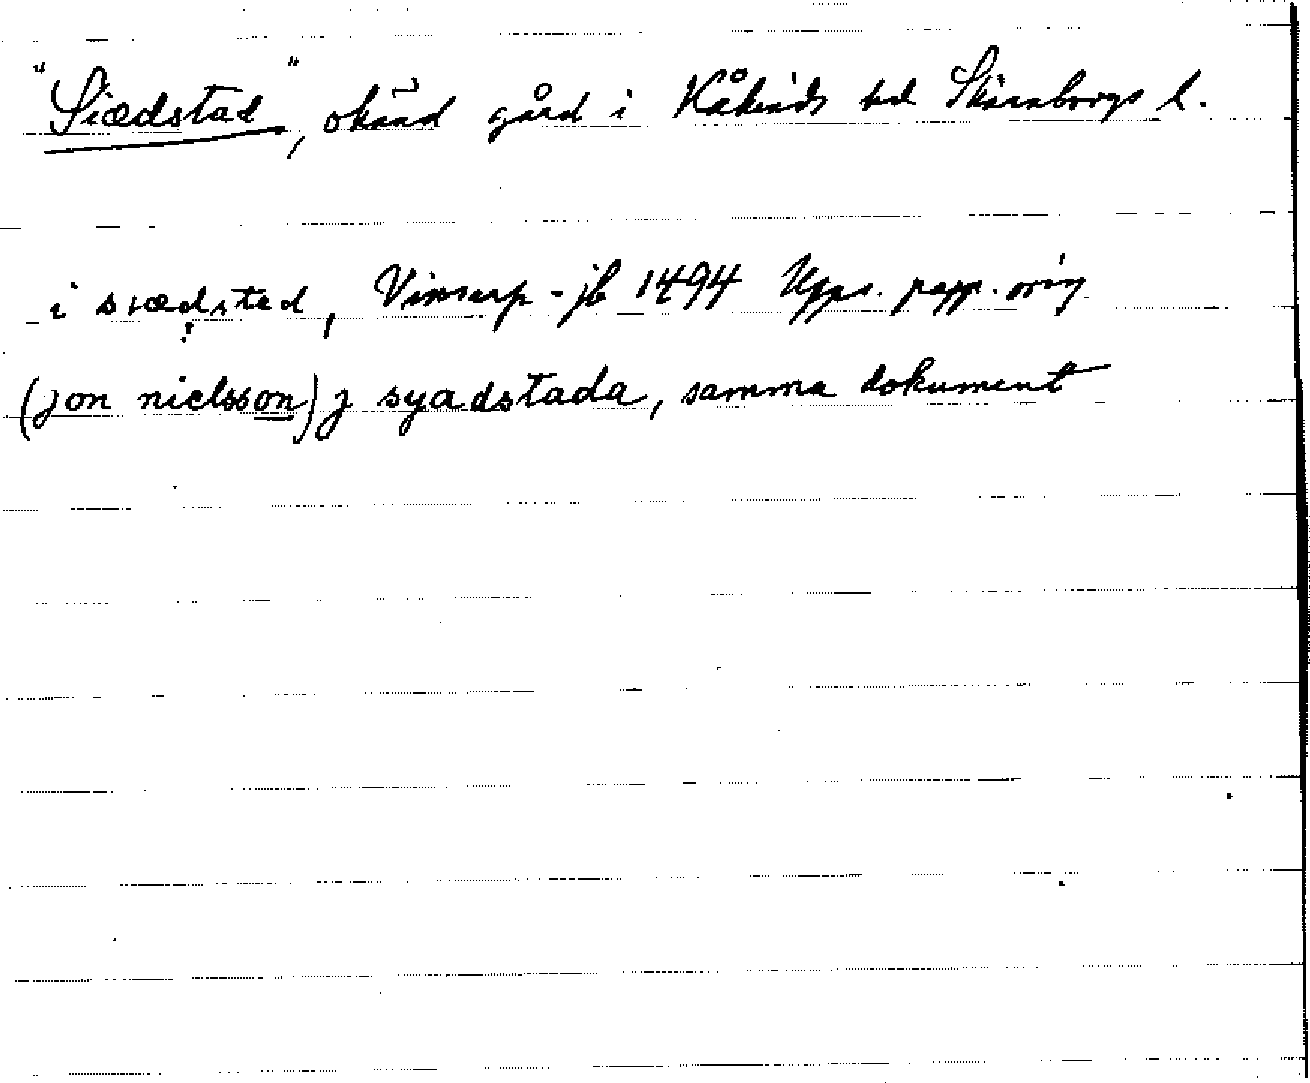 "Siædstad", okänd gård i Kåkinds hd Skaraborgs l.
i siædstad, Vinsarp-jb 1494 Upps. papp. orig
(jon nielsson) j syadstada, samma dokument